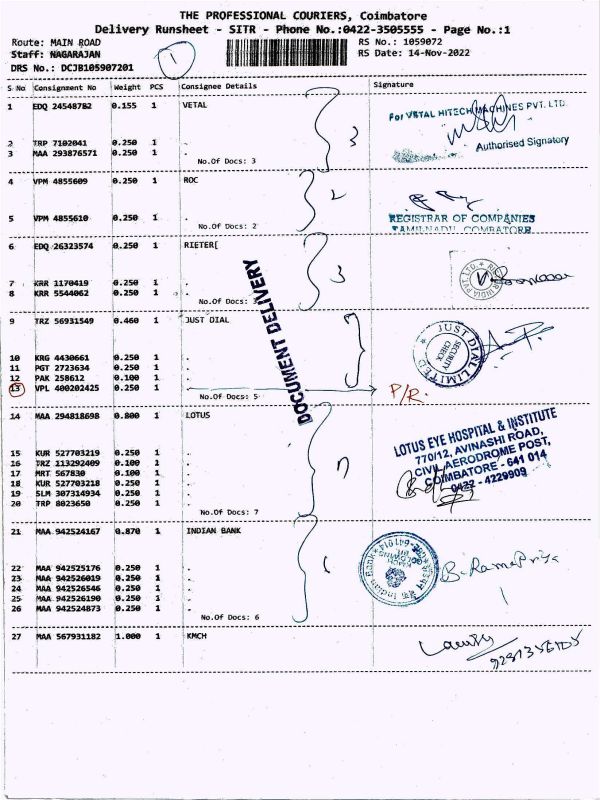 THE PROFESSIONAL COURIERS, Coimbatore
Delivery Runsheet - SITR - Phone No.:0422-3505555 - Page No.:1
Route: MAIN ROAD
Staff: NAGARAJAN
DRS No.: DCJB105907201
1
RS No.: 1059072
RS Date: 14-Nov-2022
S No Consignment No Weight PCS Consignee Details Signature
1 EDQ 24548782 0.155 1 VETAL
2 TRP 7102041 0.250 1 .
3 MAA 293876571 0.250 1 .
No.Of Docs: 3
3
For VETAL HITECH MACHINES PVT. LTD.
Authorised Signatory
4 VPM 4855609 0.250 1 ROC
5 VPM 4855610 0.250 1 .
No.Of Docs: 2
2
REGISTRAR OF COMPANIES
TAMILNADU, COIMBATORE
6 EDQ 26323574 0.250 1 RIETER[
7 KRR 1170419 0.250 1 .
8 KRR 5544062 0.250 1 .
No.Of Docs: 3
3
DOCUMENT DELIVERY
9 TRZ 56931549 0.460 1 JUST DIAL
10 KRG 4430661 0.250 1 .
11 PGT 2723634 0.250 1 .
12 PAK 258612 0.100 1 .
13 VPL 400202425 0.250 1 .
No.Of Docs: 5
P/R.
JUST DIAL LIMITED
SECURITY
CHECK
14 MAA 294818698 0.800 1 LOTUS
15 KUR 527703219 0.250 1 .
16 TRZ 113292409 0.100 1 .
17 MRT 567830 0.100 1 .
18 KUR 527703218 0.250 1 .
19 SLM 307314934 0.250 1 .
20 TRP 8023650 0.250 1 .
No.Of Docs: 7
7
LOTUS EYE HOSPITAL & INSTITUTE
770/12, AVINASHI ROAD,
CIVIL AERODROME POST,
COIMBATORE - 641 014
0422 - 4229909
21 MAA 942524167 0.870 1 INDIAN BANK
22 MAA 942525176 0.250 1 .
23 MAA 942526019 0.250 1 .
24 MAA 942526546 0.250 1 .
25 MAA 942526190 0.250 1 .
26 MAA 942524873 0.250 1 .
No.Of Docs: 6
6
Indian Bank
B. Rama Priya
27 MAA 567931182 1.000 1 KMCH